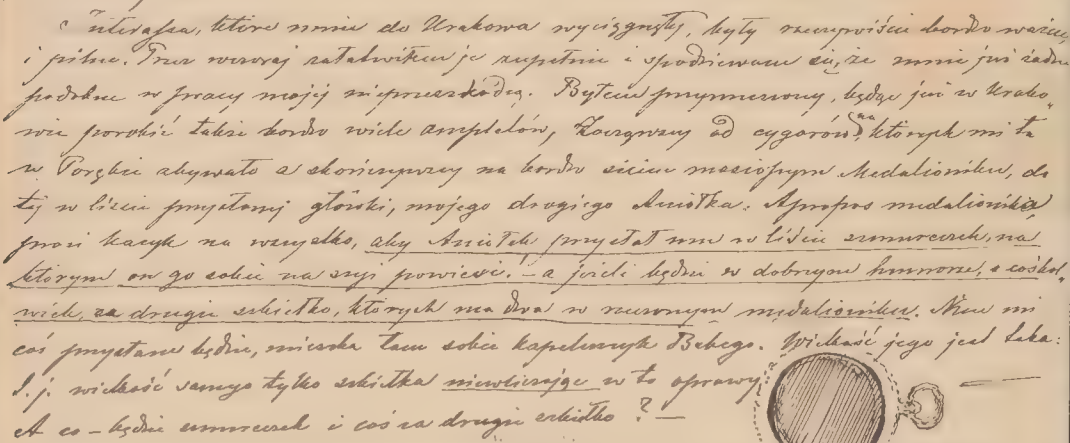 Interessa, które mnie do Krakowa wyciągnęły, były rzeczywiście bardzo ważne,
i pilne. Przez wczoraj załatwiłem je zupełnie i spodziewam się, że mnie już żadne
podobne w pracy mojej nieprzeszkodzą. Byłem przymuszony, będąc już w Krako-
wie porobić także bardzo wiele sprawunków, Zacząwszy od cygarów, na których mi tu
w Porębie zbywało a skończywszy na bardzo ślicznym masiosnym Medalioniku, do
tej w liście przysłanej główki, mojego drogiego Aniołka. Apropos medalionika,
prosi Kacyk na wszystko, aby Aniołek przysłał mu w liście sznureczek, na
którym on go sobie na szyi powiesi. – a jeżeli będzie w dobrym humorze, i cośkol-
wiek, za drugie szkiełko, których ma dwa w rzeczonym medalioniku. Nim mi
coś przysłane będzie, mieszka tam sobie kapeluszyk Bebego. Wielkość jego jest taka:
T. j. wielkość samego tylko szkiełka niewliczając w to oprawy
A co – będzie sznureczek i coś za drugie szkiełko? –